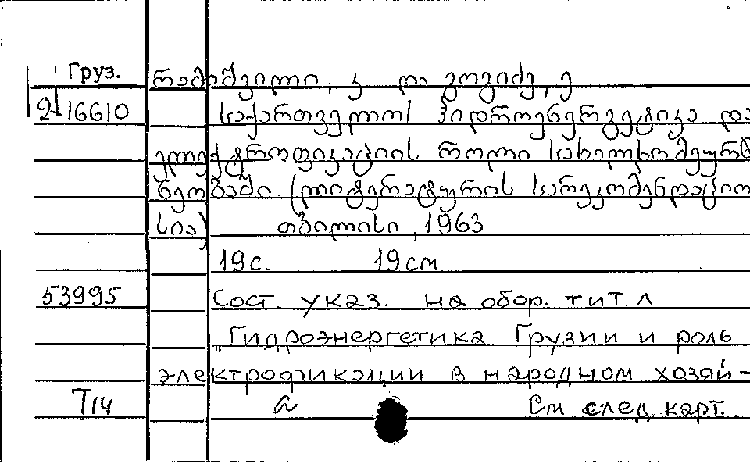 Груз. რამიშვილი, კ და გოგიძე, ე
2116610 საქართველოს ჰიდროენერგეტიკა და
ელექტროფიკაციის როლი სახალხო მეურნ
ნეობაში (ლიტერატურის სარეკომენდაციო
სია) თბილისი, 1963
19с. 19см
53995 Сост. указ. на обор. тит л
Гидроэнергетика Грузии и роль
электрофикации в народном хозяй-
Т14 а См след карт.